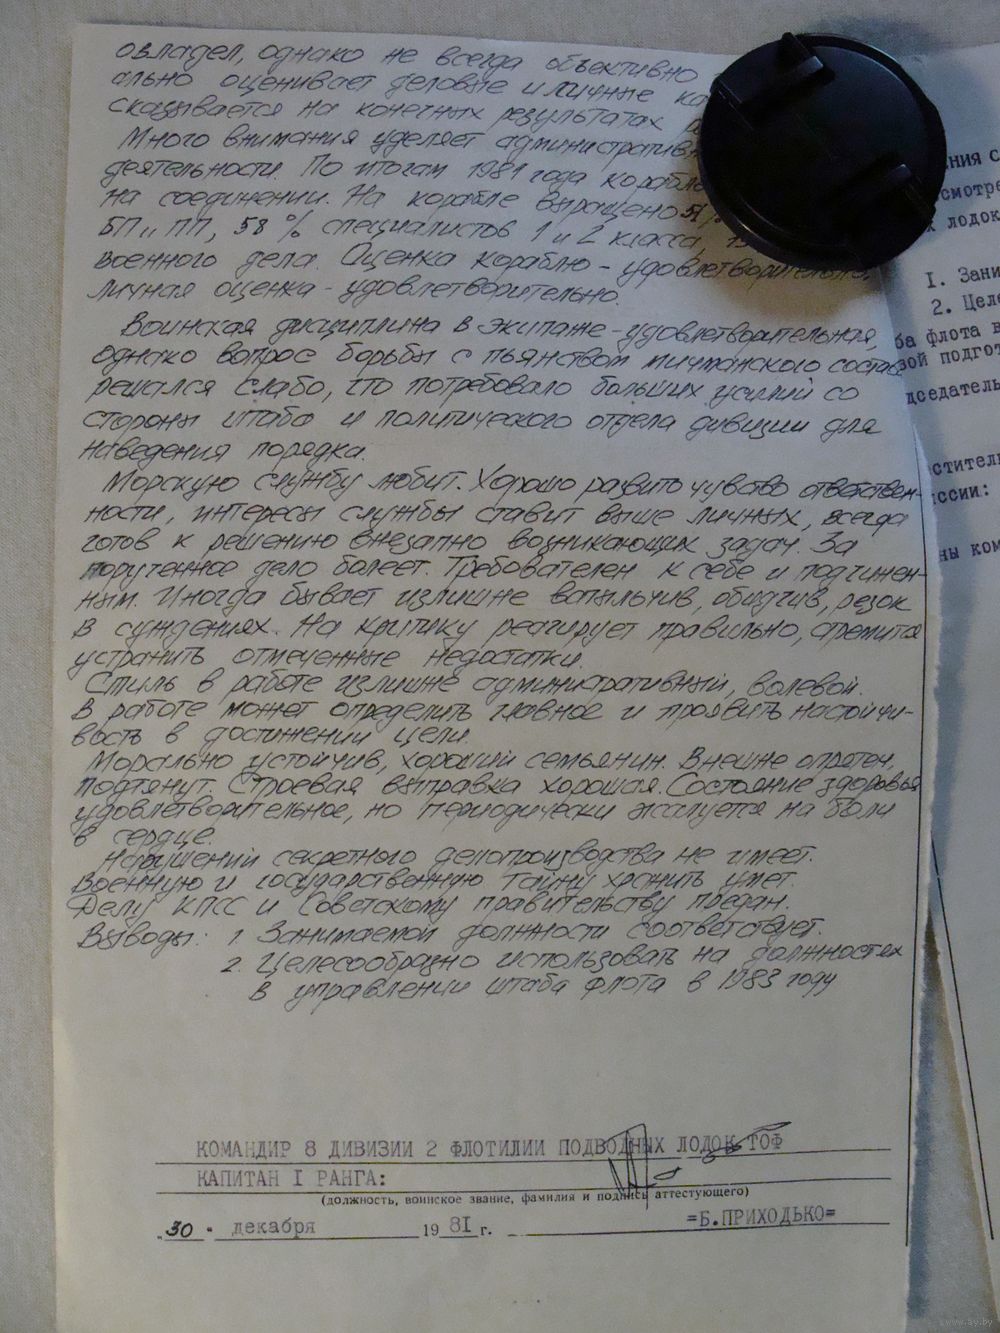 овладел, однако не всегда объективно
ально оценивает деловые и личные
сказывается на конечных результатах
Много внимания уделяет
деятельности. По итогам 1981 года
на соединении. На корабле выращено
БП и ПП, 58 % специалистов 1 и 2 класса,
военного дела. Оценка кораблю - удовлетворительно,
личная оценка - удовлетворительно.
Воинская дисциплина в экипаже - удовлетворительная,
однако вопрос борьбы с пьянством мичманского состава
решался слабо, что потребовало больших усилий со
стороны штаба и политического отдела дивизии для
наведения порядка.
Морскую службу любит. Хорошо развито чувство ответствен-
ности, интересы службы ставит выше личных, всегда
готов к решению внезапно возникающих задач. За
порученное дело болеет. Требователен к себе и подчинен-
ным. Иногда бывает излишне вспыльчив, обидчив, резок
в суждениях. На критику реагирует правильно, стремится
устранить отмеченные недостатки.
Стиль в работе излишне административный, волевой.
В работе может определить главное и проявить настойчи-
вость в достижении цели.
Морально устойчив, хороший семьянин. Внешне опрятен,
подтянут. Строевая выправка хорошая. Состояние здоровья
удовлетворительное, но периодически жалуется на боли
в сердце.
Нарушений секретного делопроизводства не имеет.
Военную и государственную тайну хранить умет.
Делу КПСС и Советскому правительству предан.
Выводы: 1. Занимаемой должности соответствует.
2. Целесообразно использовать на должностях
в управлении штаба флота в 1983 году
КОМАНДИР 8 ДИВИЗИИ 2 ФЛОТИЛИИ ПОДВОДНЫХ ЛОДОК ТОФ
КАПИТАН I РАНГА:
(должность, воинское звание, фамилия и подпись аттестующего)
„30 " декабря 1981 г. =Б.ПРИХОДЬКО=
I. Зани
2. Целе
ба флота в
www.ay.by